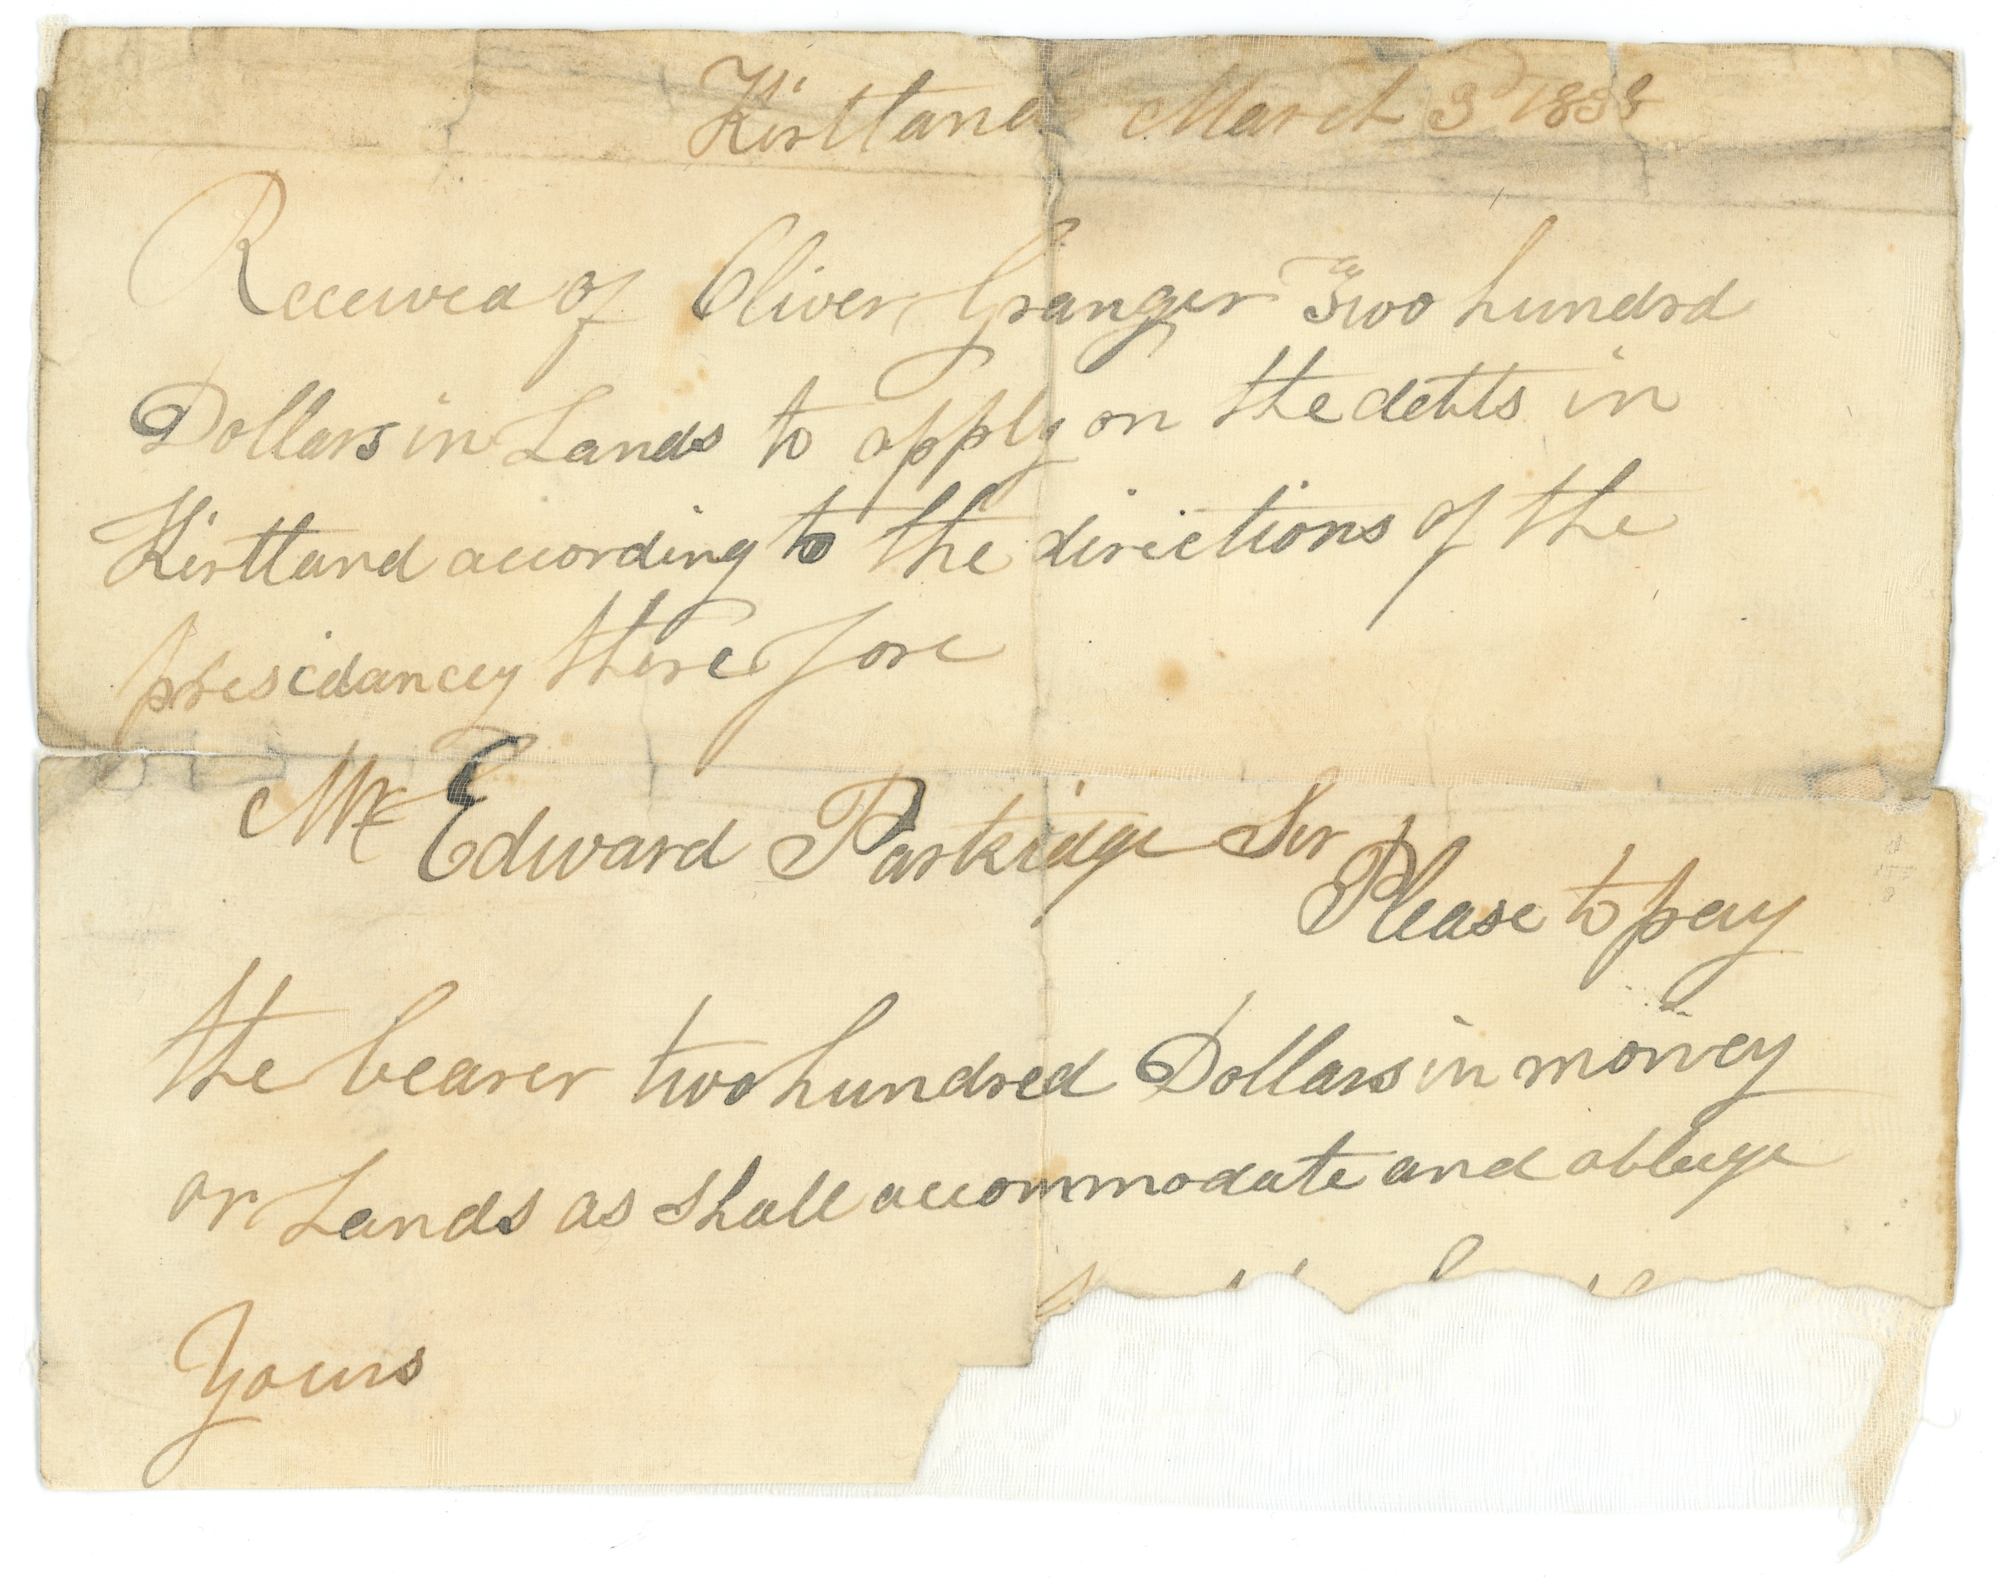 Kirtland March 3d 1838
Received of Oliver Granger Two hundrd
Dollars in Lands to apply on the debts in
Kirtland according to the directions of the
presidancey there fore
Mr Edward Partridge Sir
Please to pay
the bearer two hundred Dollars in money
or Lands as shall accommodate and obleige
Yours